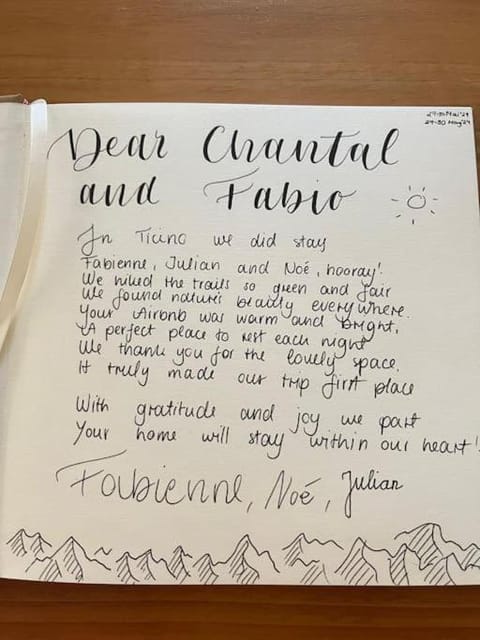 27-30 Mai '24
27-30 May '24
Dear Chantal
and Fabio
In Ticino we did stay
Fabienne, Julian and Noé, hooray!
We hiked the trails so green and fair
We found nature's beauty everywhere.
Your Airbnb was warm and bright,
A perfect place to rest each night
We thank you for the lovely space.
It truly made our trip first place
With gratitude and joy we part
Your home will stay within our heart!
Fabienne, Noé, Julian